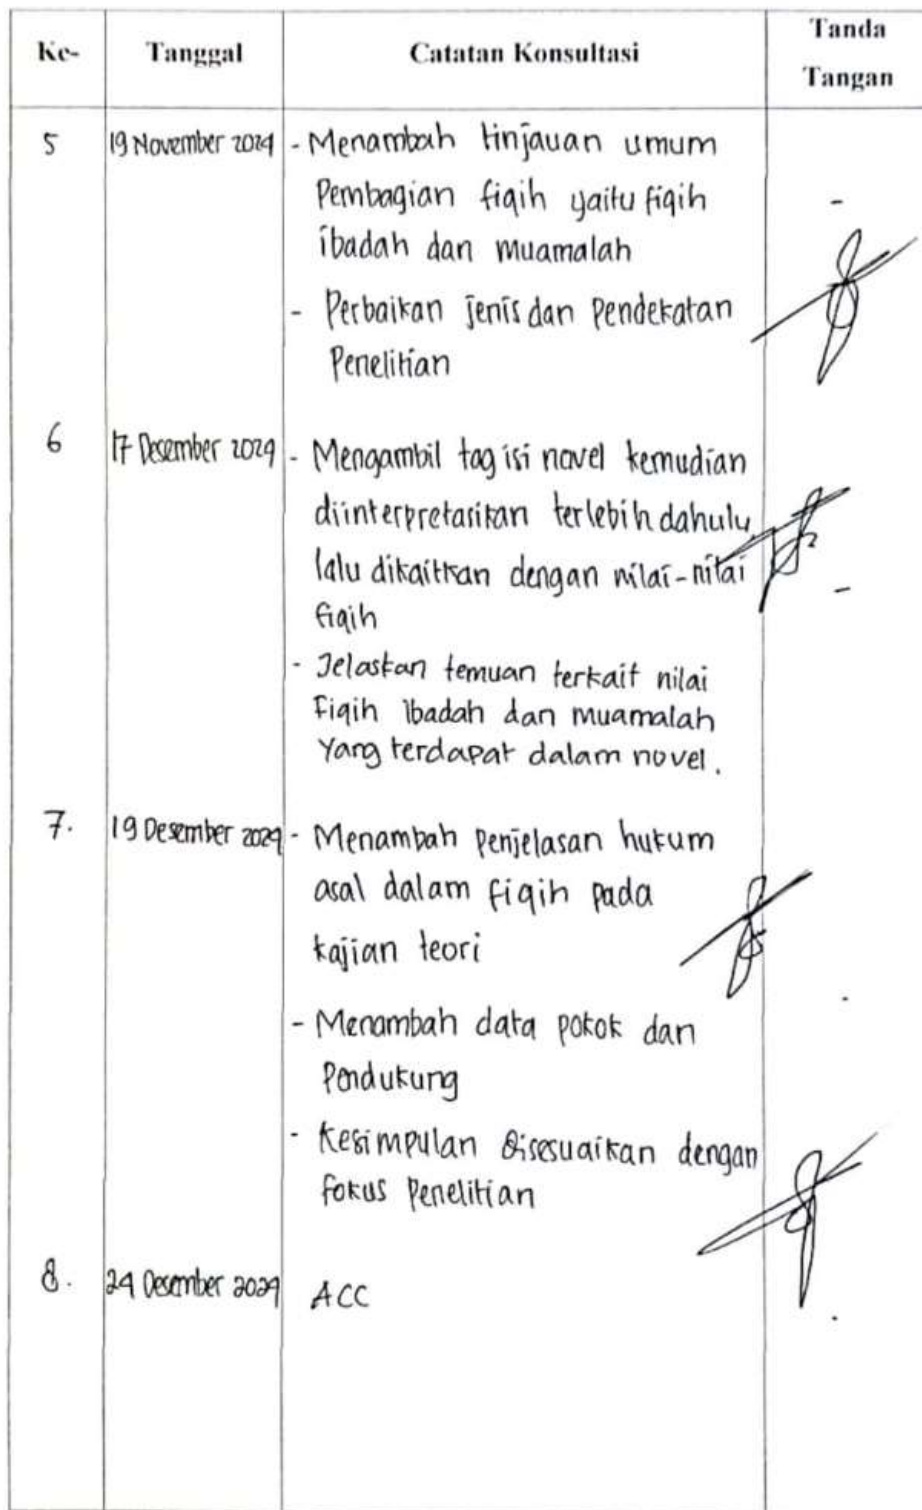 Ke- Tanggal Catatan Konsultasi Tanda Tangan
5 19 November 2024 - Menambah tinjauan umum
Pembagian fiqih yaitu fiqih
ibadah dan muamalah
- Perbaikan jenis dan Pendekatan
Penelitian
6 17 Desember 2024 - Mengambil tag isi novel kemudian
diinterpretasikan terlebih dahulu,
lalu dikaitkan dengan nilai-nilai
fiqih
- Jelaskan temuan terkait nilai
Fiqih Ibadah dan muamalah
Yang terdapat dalam novel.
7. 19 Desember 2024 - Menambah Penjelasan hukum
asal dalam fiqih pada
kajian teori
- Menambah data pokok dan
Pendukung
- Kesimpulan Disesuaikan dengan
fokus Penelitian
8. 24 Desember 2024 ACC